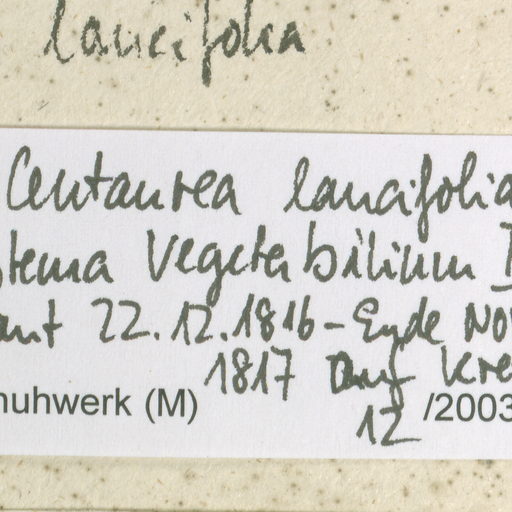 lancifolia
Centaurea lancifolia
stema Vegetabilium
ant 22.12.1816-Ende Nov
1817 auf Kre
nuhwerk (M)
12 /2003